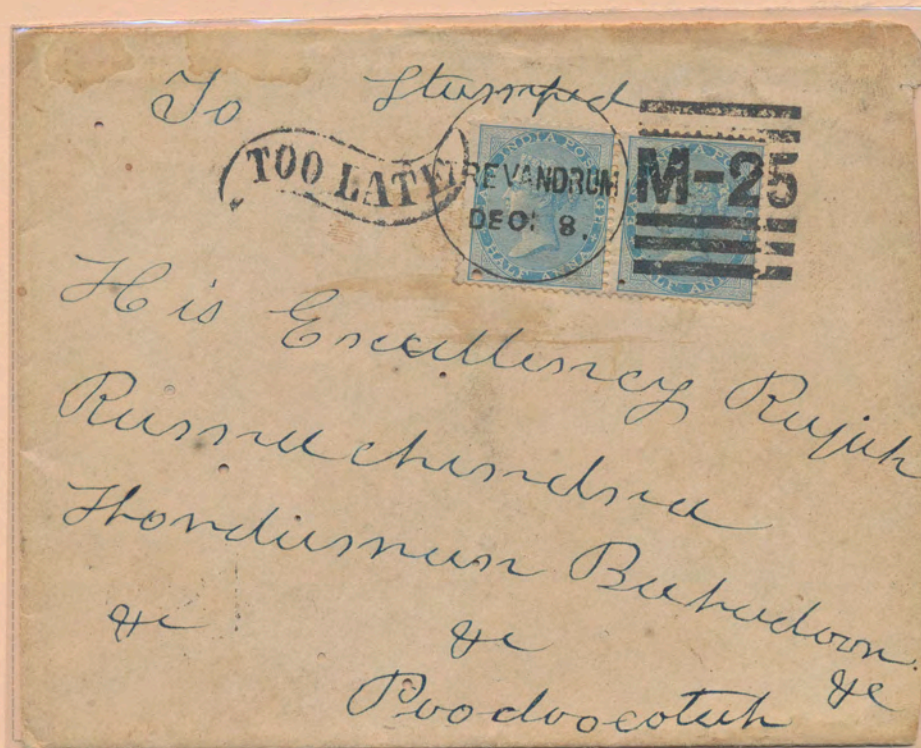 To Stamped
TOO LATE
TREVANDRUM
DEC: 8.
M-25
INDIA POSTAGE
HALF ANNA
HALF ANNA
His Excellency Rajah
Ramachendra
Thondiman Bahadoor
&c &c &c
Poodoocotah